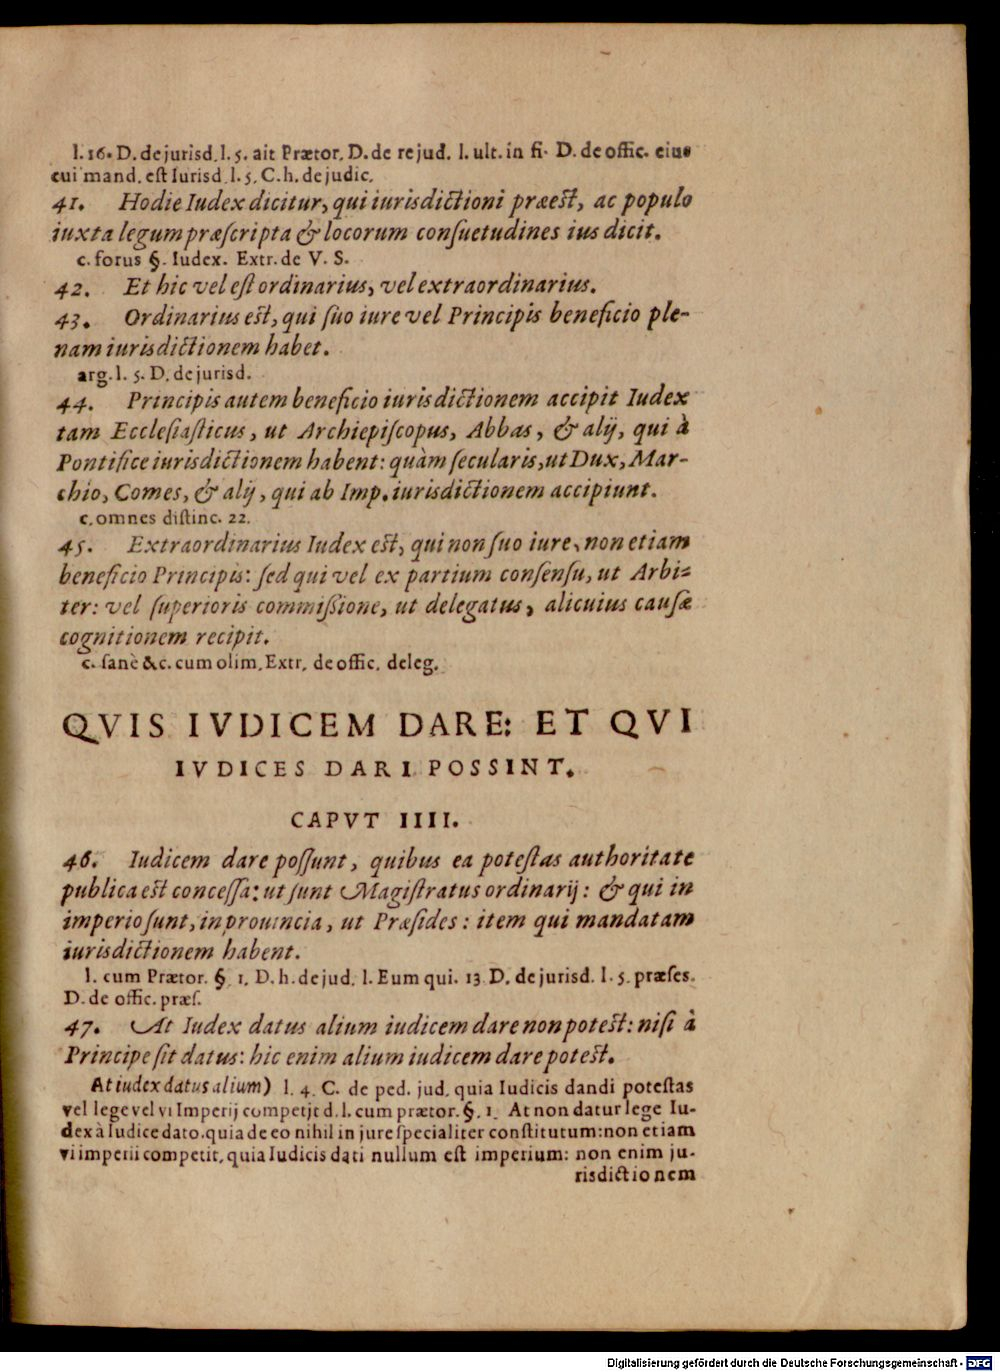 l. 16. D. de jurisd. l. 5. ait Prætor. D. de re jud. l. ult. in fi. D. de offic. eius
cui mand. est Iurisd. l. 5. C. h. de judic.
41. Hodie Iudex dicitur, qui iurisdictioni præest, ac populo
iuxta legum præſcripta & locorum conſuetudines ius dicit.
c. forus §. Iudex. Extr. de V. S.
42. Et hic vel eſt ordinarius, vel extraordinarius.
43. Ordinarius est, qui ſuo iure vel Principis beneficio ple-
nam iurisdictionem habet.
arg. l. 5. D. de jurisd.
44. Principis autem beneficio iurisdictionem accipit Iudex
tam Eccleſiaſticus, ut Archiepiſcopus, Abbas, & alij, qui à
Pontifice iurisdictionem habent: quàm ſecularis, ut Dux, Mar-
chio, Comes, & alij, qui ab Imp. iurisdictionem accipiunt.
c. omnes diſtinc. 22.
45. Extraordinarius Iudex est, qui non ſuo iure, non etiam
beneficio Principis: ſed qui vel ex partium conſenſu, ut Arbi-
ter: vel ſuperioris commiſsione, ut delegatus, alicuius cauſæ
cognitionem recipit.
c. ſanè &c. cum olim. Extr. de offic. deleg.
QVIS IVDICEM DARE: ET QVI
IVDICES DARI POSSINT.
CAPVT IIII.
46. Iudicem dare poſſunt, quibus ea poteſtas authoritate
publica est conceſſa: ut ſunt Magiſtratus ordinarij: & qui in
imperio ſunt, in prouincia, ut Præſides: item qui mandatam
iurisdictionem habent.
l. cum Prætor. §. 1. D. h. de jud. l. Eum qui. 13 D. de jurisd. l. 5. præſes.
D. de offic. præſ.
47. At Iudex datus alium iudicem dare non potest: niſi à
Principe ſit datus: hic enim alium iudicem dare potest.
At iudex datus alium) l. 4. C. de ped. jud. quia Iudicis dandi poteſtas
vel lege vel vi Imperij competit d. l. cum prætor. §. 1. At non datur lege Iu-
dex à Iudice dato. quia de eo nihil in jure ſpecialiter conſtitutum: non etiam
vi imperii competit, quia Iudicis dati nullum eſt imperium: non enim ju-
risdictionem
Digitalisierung gefördert durch die Deutsche Forschungsgemeinschaft - DFG